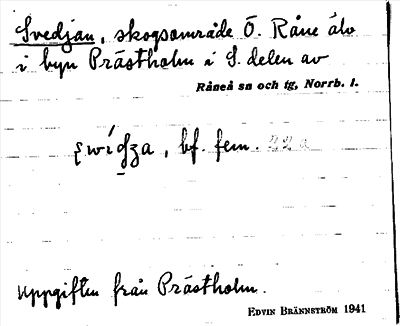 Svedjan, skogsområde Ö. Råne älv
i byn Prästholm i S. delen av
Råneå sn och tg, Norrb. l.
, bf. fem. 22 a
Uppgiften från Prästholm.
EDVIN BRÄNNSTRÖM 1941